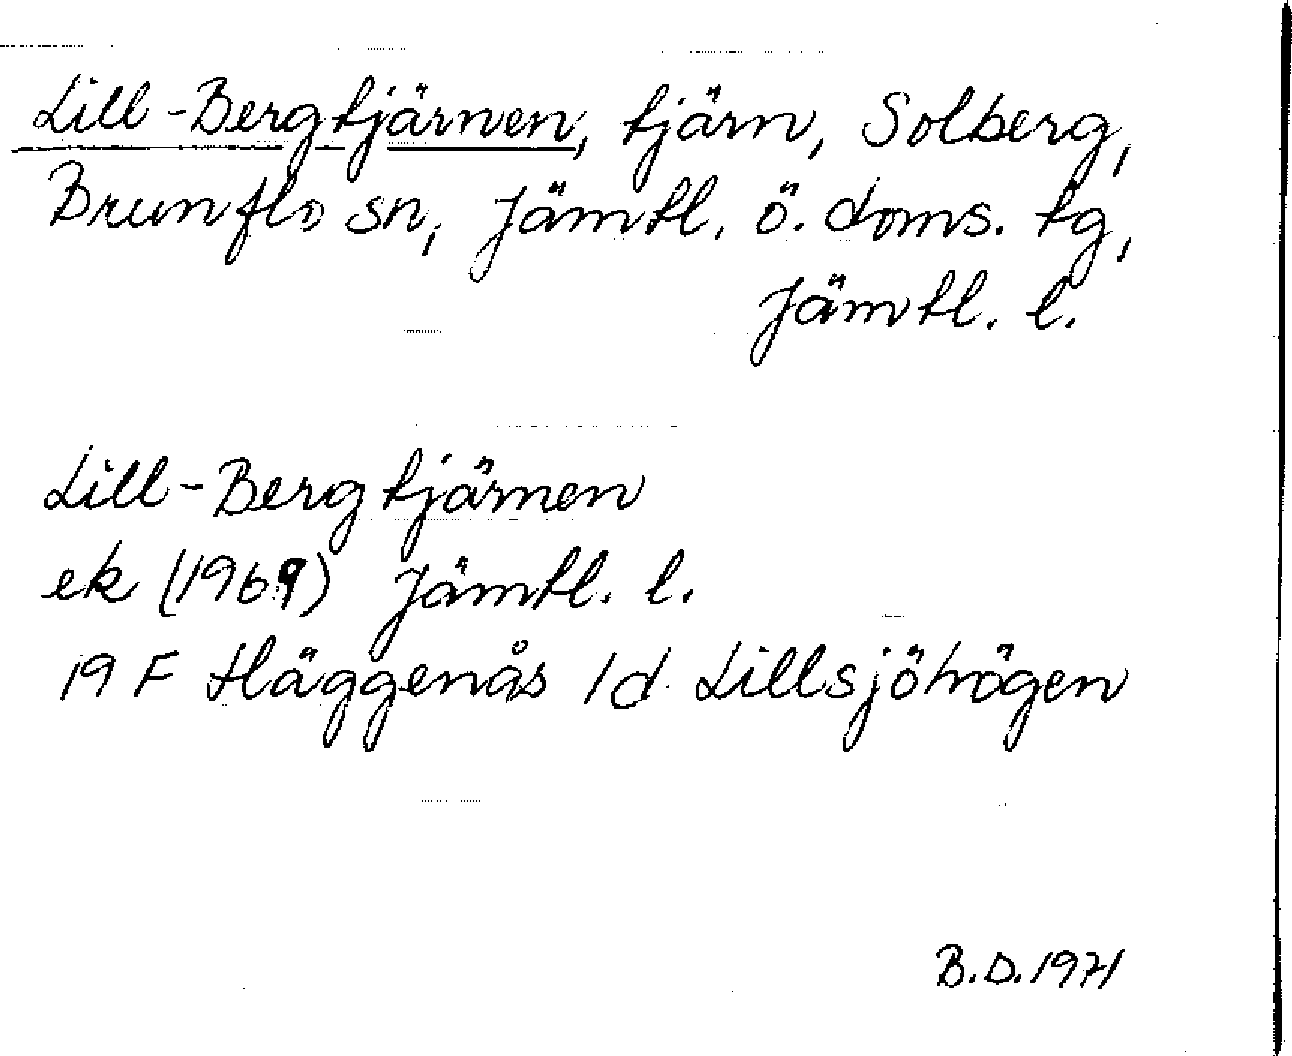 Lill-Bergtjärnen, tjärn, Solberg,
Brunflo sn, Jämtl. ö. doms. tg,
Jämtl. l.
Lill-Bergtjärnen
ek (1969) Jämtl. l.
19 F Häggenås 1d Lillsjöhögen
B.D. 1971